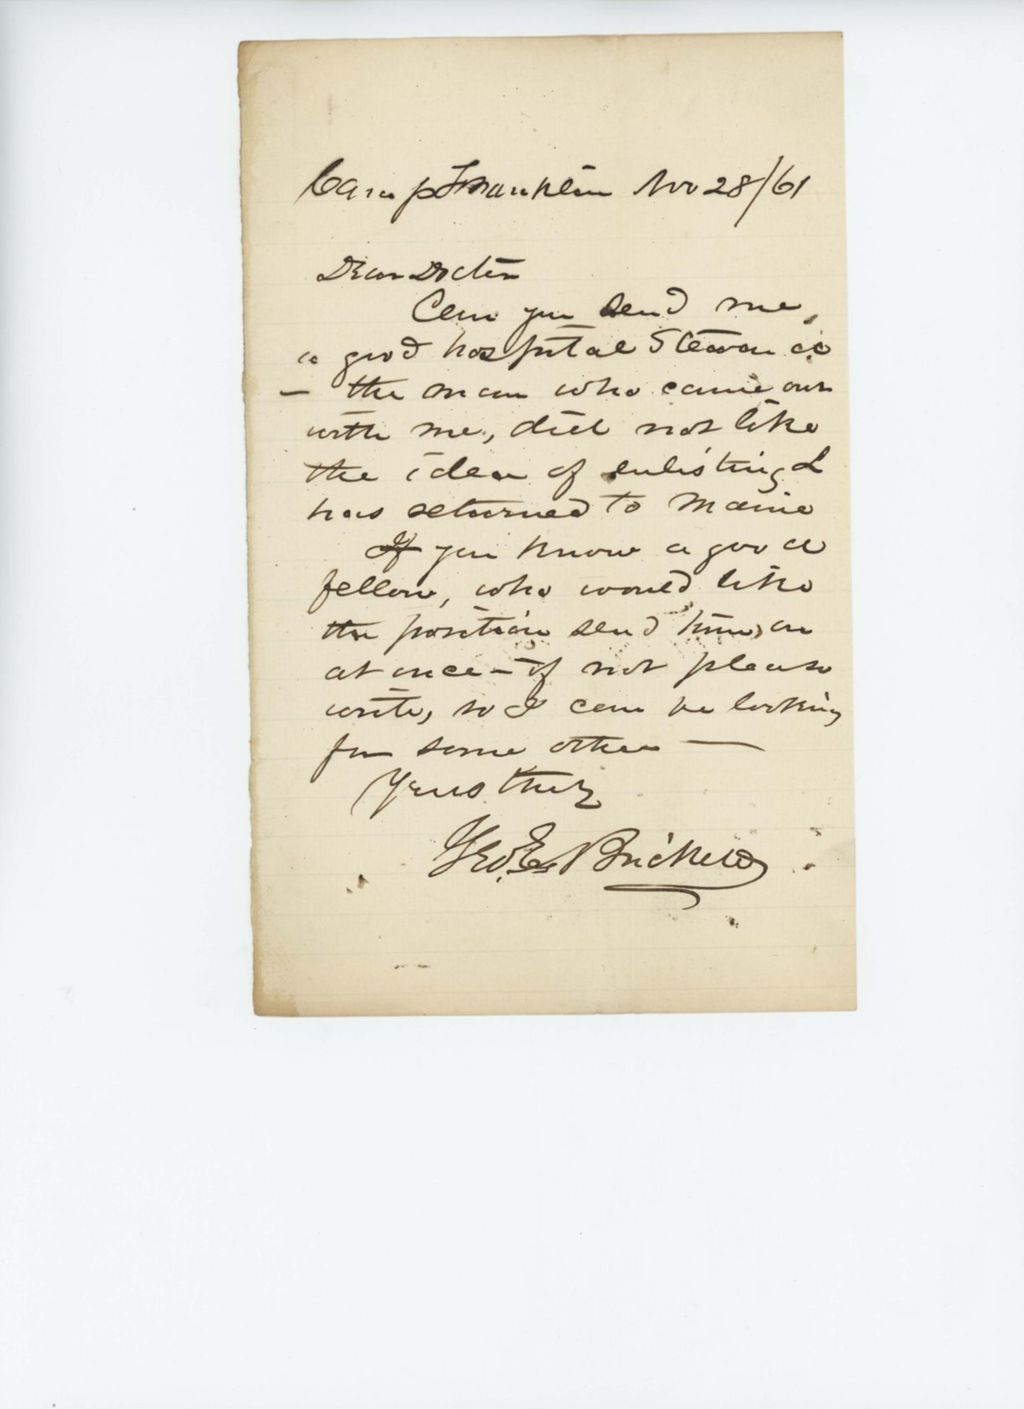 Camp Franklin Nov 28/61
Dear Doctor
Can you send me,
a good hospital Steward
– the man who came out
with me, did not like
the idea of enlisting &
has returned to Maine
If you know a good
fellow, who would like
the position send him on
at once – if not please
write, so I can be looking
for some other —
Yours truly
Geo. E. Brickett